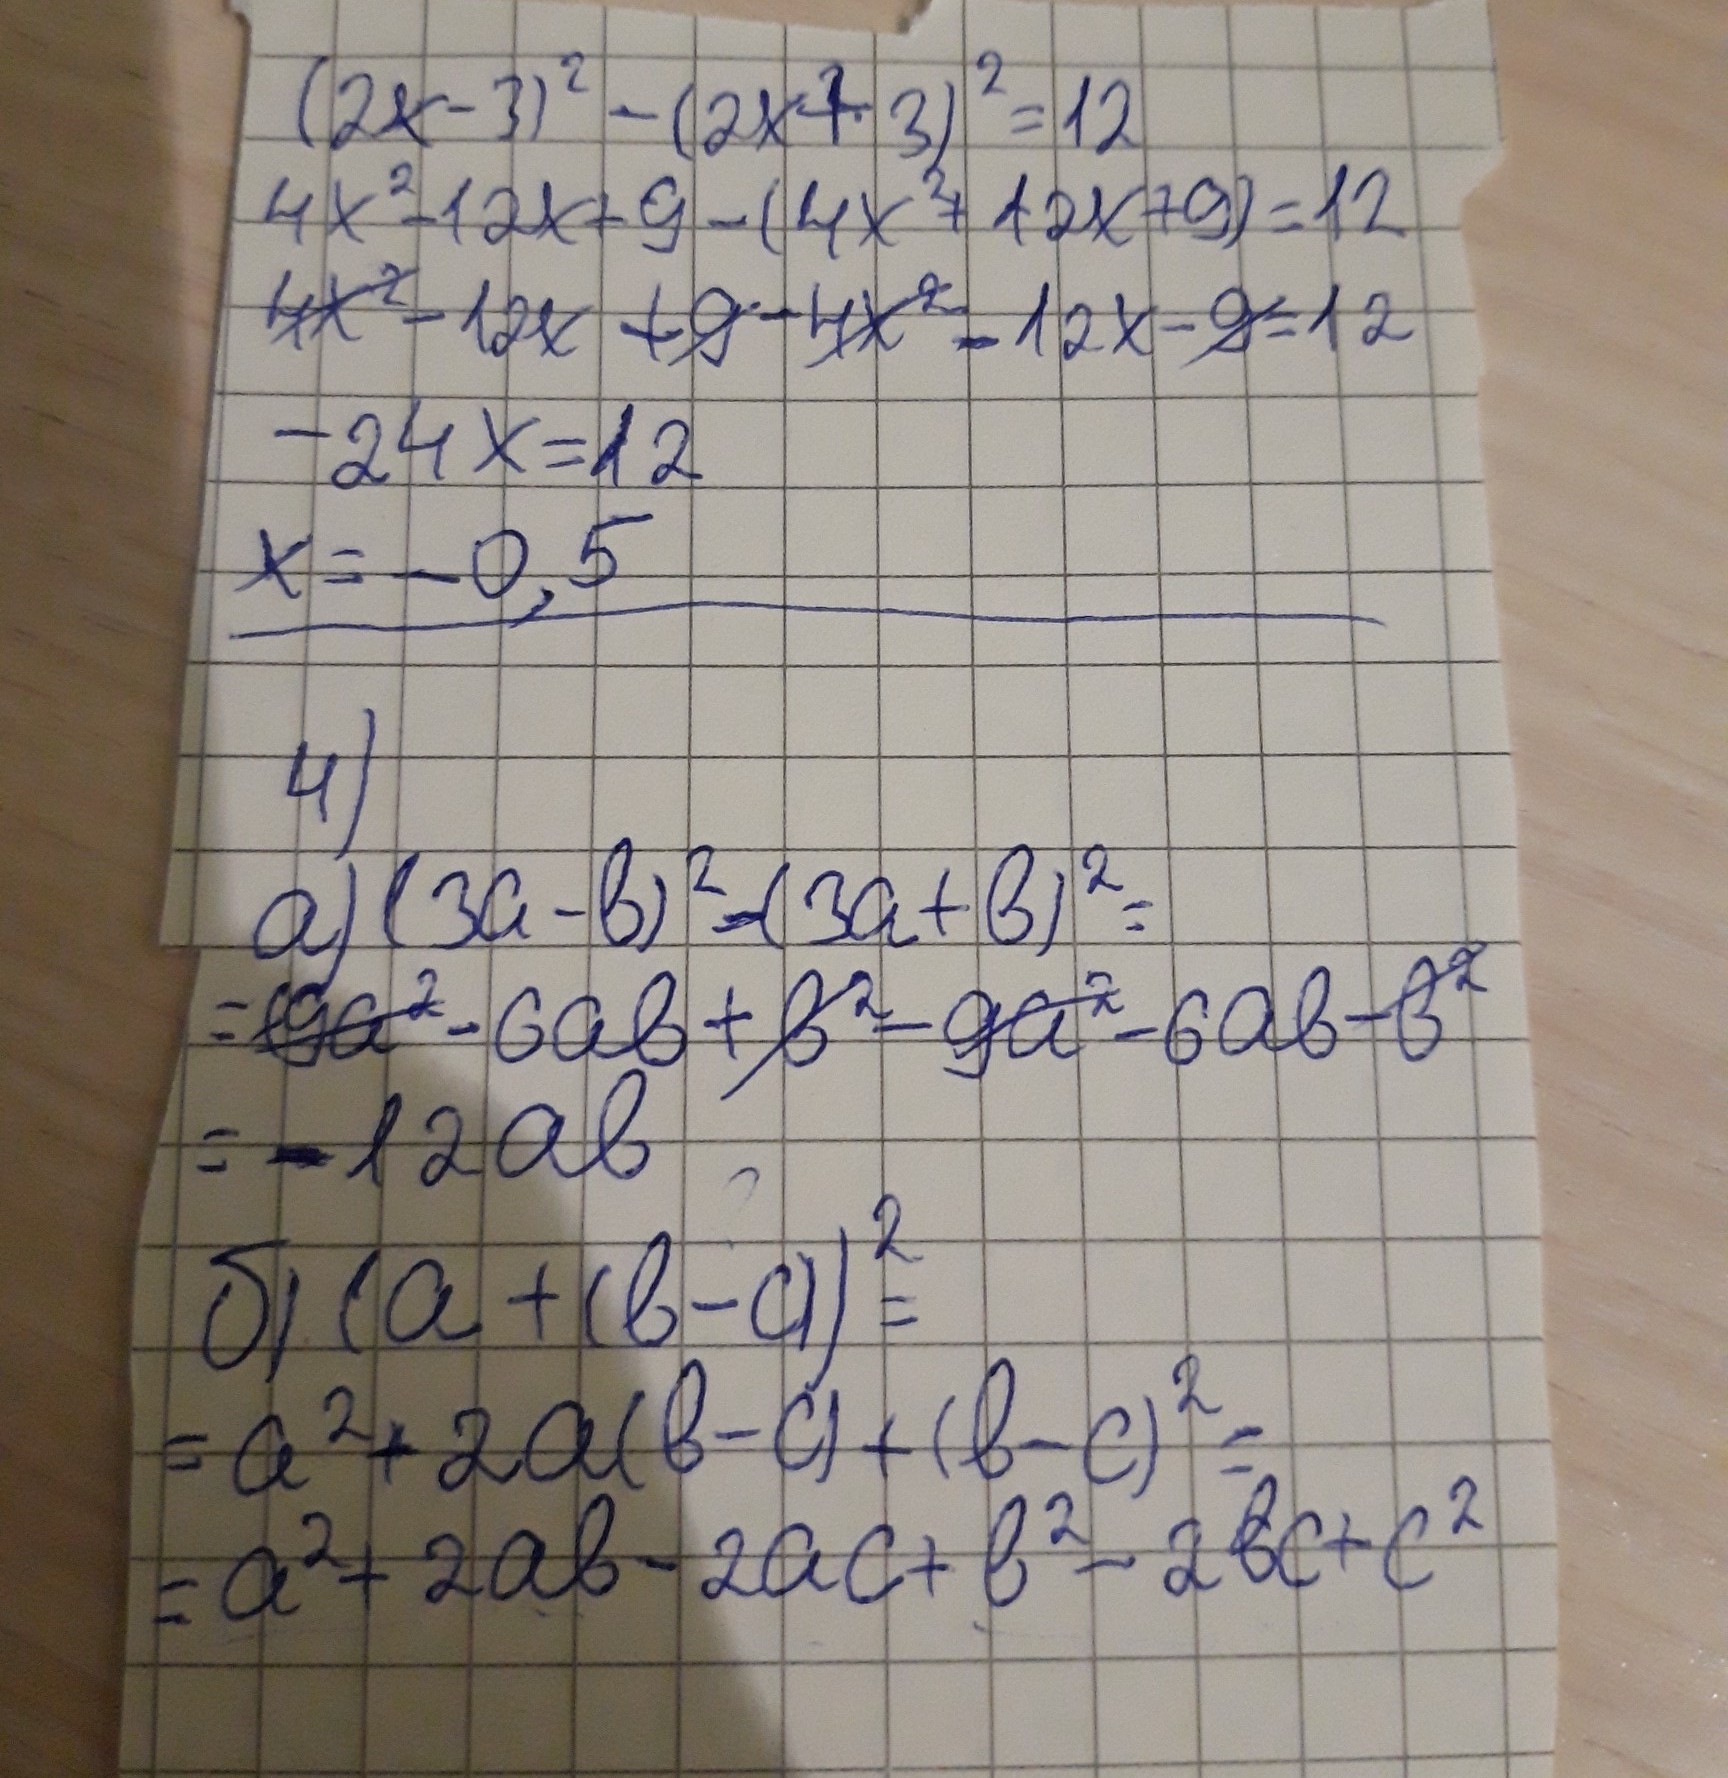 (2x-3)² -(2x+3)² =12
4x²-12x+9-(4x²+12x+9)=12
4x²-12x+9-4x²-12x-9=12
-24x=12
x=-0,5
4)
а) (3a-b)²-(3a+b)²=
=9a²-6ab+b²-9a²-6ab-b²
=-12ab
б) (a+(b-c))²=
=a²+2a(b-c)+(b-c)²=
=a²+2ab-2ac+b²-2bc+c²